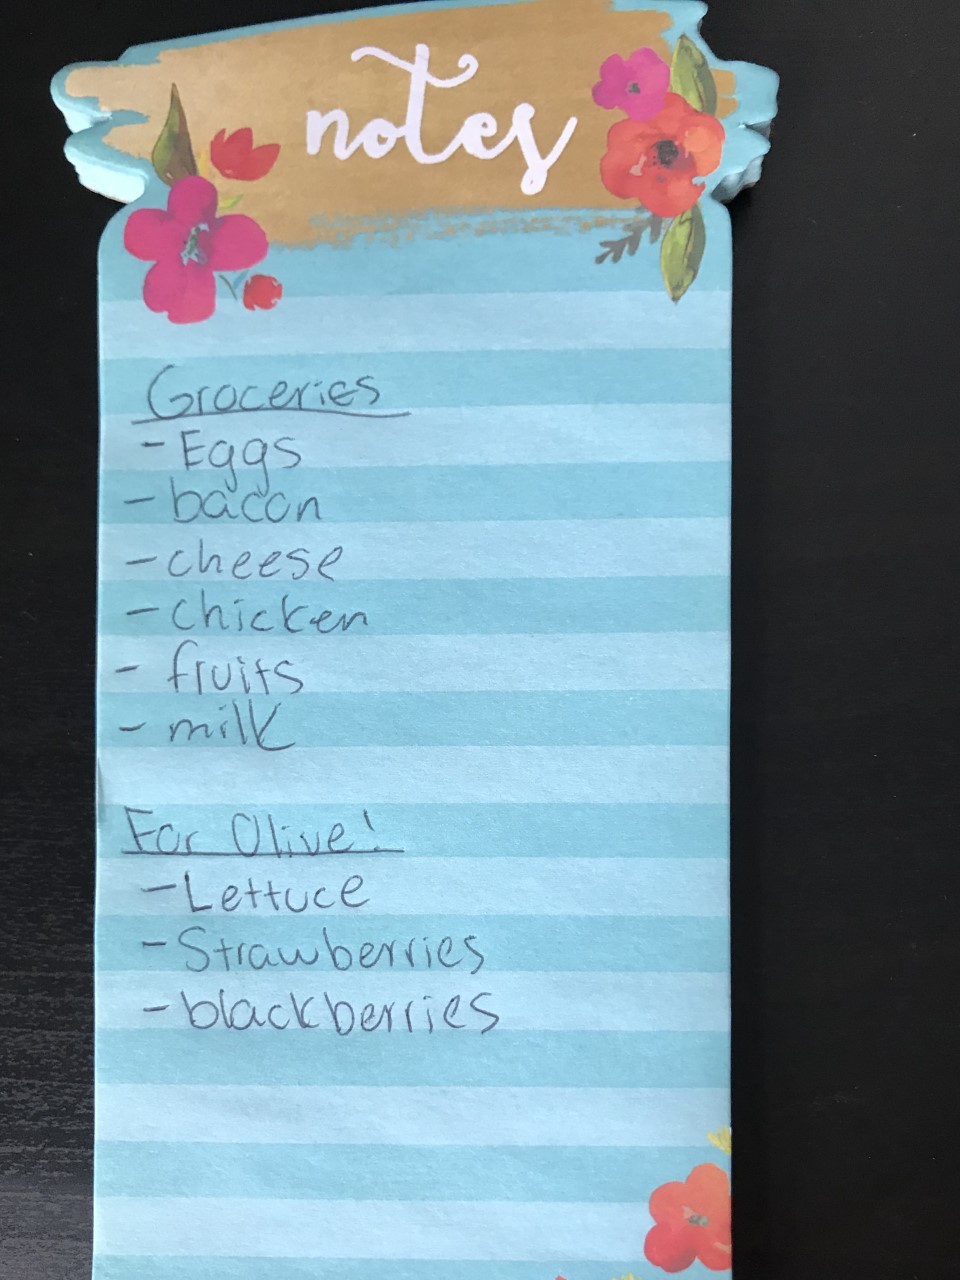 notes
Groceries
- Eggs
- bacon
- cheese
- chicken
- fruits
- milk
For Olive!
- Lettuce
- Strawberries
- blackberries